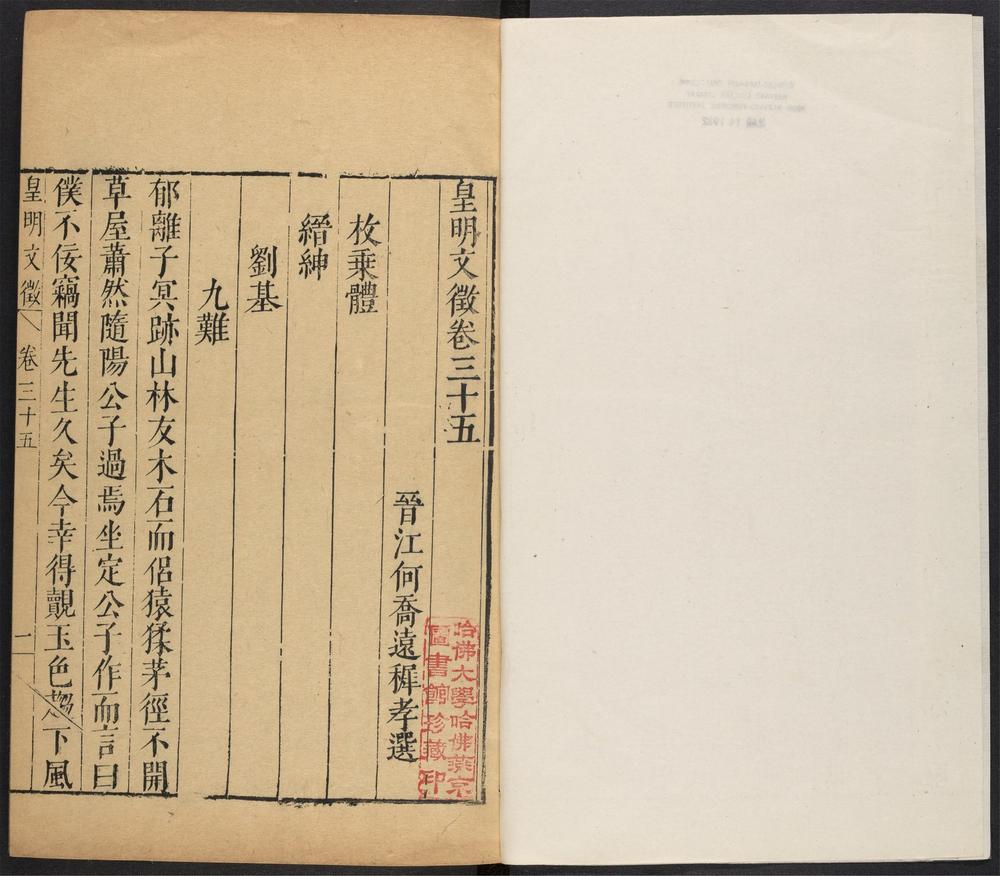 皇明文徵卷三十五
晉江何喬遠穉孝選
枚乗體
縉紳
劉基
九難
郁離子冥跡山林友木石而侶猿猱茅徑不開
草屋蕭然隨陽公子過焉坐定公子作而言曰
僕不佞竊聞先生久矣今幸得覿玉色趨下風
皇明文徵
卷三十五
一
哈佛大學哈佛燕京
圖書館珍藏印